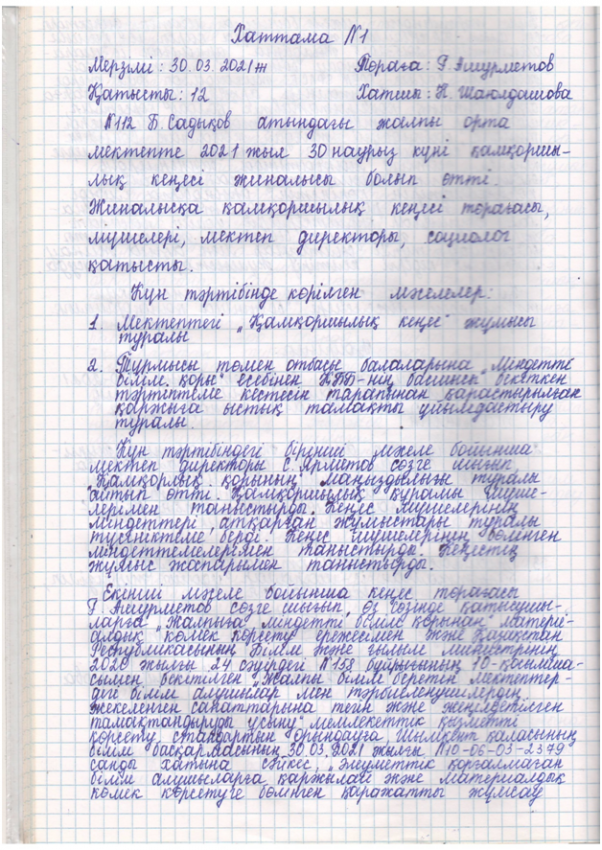 Хаттама №1
Мерзімі: 30.03.2021ж Төраға: Ғ.Ашурметов
Қатысты: 12 Хатшы: Н. Шаюлдашова
№112 Б.Садықов атындағы жалпы орта
мектепте 2021 жыл 30 наурыз күні қамқоршы-
лық кеңесі жиналысы болып өтті.
Жиналысқа қамқоршылық кеңесі төрағасы,
мүшелері, мектеп директоры, социолог
қатысты.
Күн тәртібінде көрілген мәселелер:
1. Мектептегі "Қамқоршылық кеңес" жұмысы
туралы
2. Тұрмысы төмен отбасы балаларына "Міндетті
білім қоры" есебінен ЖББ-нің басшысы бекіткен
тәртіптеме кестесін тарапынан қарастырылған
қаржыға ыстық тамақты ұйымдастыру
туралы.
Күн тәртібіндегі бірінші мәселе бойынша
мектеп директоры С.Ярметов сөзге шығып
"Қамқорлық қорының" маңыздылығы туралы
айтып өтті. Қамқоршылық құрамы мүше-
лерімен таныстырды. Кеңес мүшелерінің
міндеттері атқарған жұмыстары туралы
түсініктеме берді. Кеңес мүшелерінің бөлінген
міндеттемелерімен таныстырды. Кеңестің
жұмыс жоспарымен таныстырды.
Екінші мәселе бойынша кеңес төрағасы
Ғ.Ашурметов сөзге шығып, өз сөзінде қатысушы-
ларға "Жалпыға міндетті білім қорынан" матери-
алдық көмек көрсету ережесімен және Қазақстан
Республикасының Білім және ғылым министрінің
2020 жылғы 24 сәуірдегі №158 бұйрығының 10-қосымша-
сымен бекітілген "Жалпы білім беретін мектептер-
дегі білім алушылар мен тәрбиеленушілердің
жекеленген санаттарына тегін және жеңілдетілген
тамақтандыруды ұсыну" мемлекеттік қызметті
көрсету стандартын орындауға, Шымкент қаласының
білім басқармасының 30.03.2021 жылғы №10-06-03-2349
санды хатына сәйкес, "әлеуметтік қорғалмаған
білім алушыларға қаржылай және материалдық
көмек көрсетуге бөлінген қаражатты жұмсау